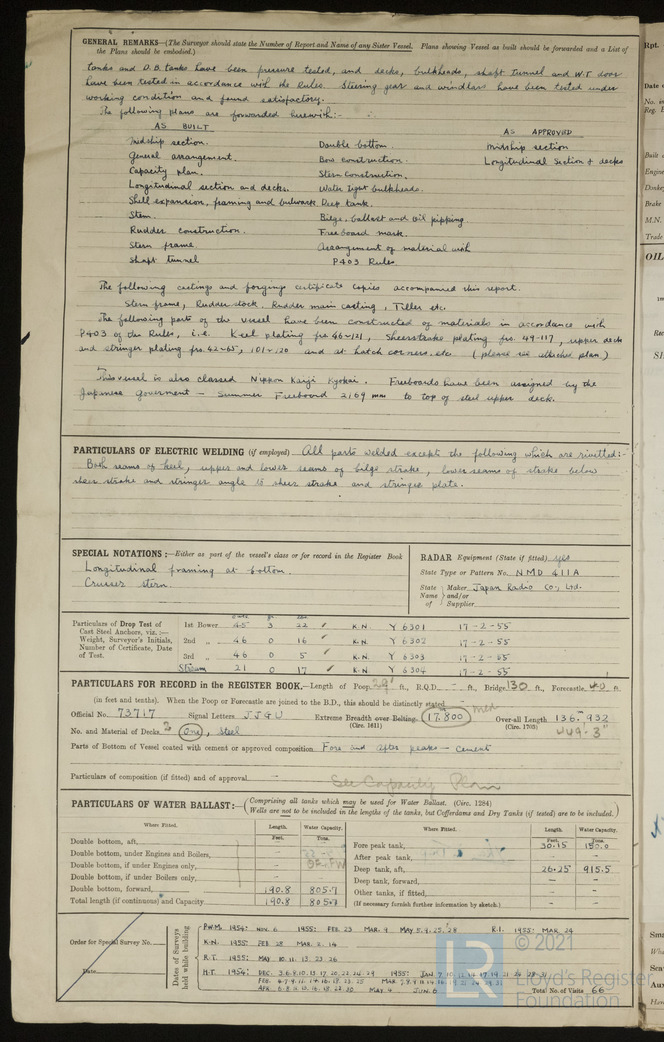 GENERAL REMARKS—(The Surveyor should state the Number of Report and Name of any Sister Vessel. Plans showing Vessel as built should be forwarded and a List of
the Plans should be embodied.)
tanks and D.B. tanks have been pressure tested, and decks, bulkheads, shaft tunnel and W.T. door
have been tested in accordance with the Rules. Steering gear and windlass have been tested under
working condition and found satisfactory.
The following plans are forwarded herewith:-
AS BUILT
AS APPROVED
Midship section. Double bottom. Midship section
General arrangement. Bow construction. Longitudinal Section & decks
Capacity plan. Stern construction.
Longitudinal section and decks. Water tight bulkheads.
Shell expansion, framing and bulwark. Deep tank.
Stem. Bilge, ballast and oil pipping
Rudder construction. Freeboard mark.
Stern frame Arrangement of material with
Shaft tunnel P403 Rules.
The following castings and forgings certificate copies accompanied this report.
Stern frame, Rudder stock, Rudder main casting, Tiller etc.
The following parts of the vessel have been constructed of materials in accordance with
P403 of the Rules, i.e. Keel plating frs. 46~121, Sheerstrake plating frs. 49-117, upper deck
and stringer plating frs. 42~65, 101~120 and at hatch corners. etc. (please see attached plan)
This vessel is also classed Nippon Kaiji Kyokai. Freeboards have been assigned by the
Japanese goverment — Summer Freeboard 2169 mm to top of steel upper deck.
PARTICULARS OF ELECTRIC WELDING (if employed) All parts welded except the following which are rivetted:-
Both seams of keel, upper and lower seams of bilge strake, lower seams of strake below
sheer strake and stringer angle to sheer strake and stringer plate.
SPECIAL NOTATIONS:—Either as part of the vessel's class or for record in the Register Book
Longitudinal framing at bottom.
Cruiser stern.
RADAR Equipment (State if fitted) yes
State Type or Pattern No. NMD 411A
State Name of Maker and/or Supplier Japan Radio Co., Ltd.
Particulars of Drop Test of
Cast Steel Anchors, viz.:—
Weight, Surveyor's Initials,
Number of Certificate, Date
of Test.
1st Bower 45 3 22 ✓ K.N. Y 6301 17-2-55
2nd „ 46 0 16 ✓ K.N. Y 6302 17-2-55
3rd „ 46 0 5 ✓ K.N. Y 6303 17-2-55
Stream 21 0 17 ✓ K.N. Y 6304 17-2-55
PARTICULARS FOR RECORD in the REGISTER BOOK.—Length of Poop 39' ft., R.Q.D. - ft., Bridge 130 ft., Forecastle 40 ft.
(in feet and tenths). When the Poop or Forecastle are joined to the B.D., this should be distinctly stated
Official No. 73717 Signal Letters JJGU Extreme Breadth over Belting (Circ. 1611) 17.800 Over-all Length (Circ. 1703) 136.932
449'-3"
No. and Material of Decks One, steel
Parts of Bottom of Vessel coated with cement or approved composition Fore and after peaks — cement
Particulars of composition (if fitted) and of approval —
See Capacity Plan
PARTICULARS OF WATER BALLAST:— (Comprising all tanks which may be used for Water Ballast. (Circ. 1284)
Wells are not to be included in the lengths of the tanks, but Cofferdams and Dry Tanks (if tested) are to be included.)
Where Fitted. Length. Feet. Water Capacity. Tons.
Double bottom, aft,
Double bottom, under Engines and Boilers,
Double bottom, if under Engines only,
Double bottom, if under Boilers only,
Double bottom, forward, 190.8 805.7
Total length (if continuous) and Capacity 190.8 805.7
Where Fitted. Length. Feet. Water Capacity. Tons.
Fore peak tank, 30.15 150.0
After peak tank, - -
Deep tank, aft, 26.25 915.5
Deep tank, forward, - -
Other tanks, if fitted, - -
(If necessary furnish further information by sketch.)
Order for Special Survey No.
Date
Dates of Surveys held while building
P.W.M. 1954: NOV. 6 1955: FEB 23 MAR. 9 MAY 5.9.25.28 K.I. 1955: MAR 24
K.N. 1955: FEB 28 MAR. 2.14
R.T. 1955: MAY 10.11.13.23.26
H.T. 1954: DEC.
MAY 4 JUN. 6
Total No. of Visits 66
© 2021
LR
Lloyd's Register
Foundation
Rpt.